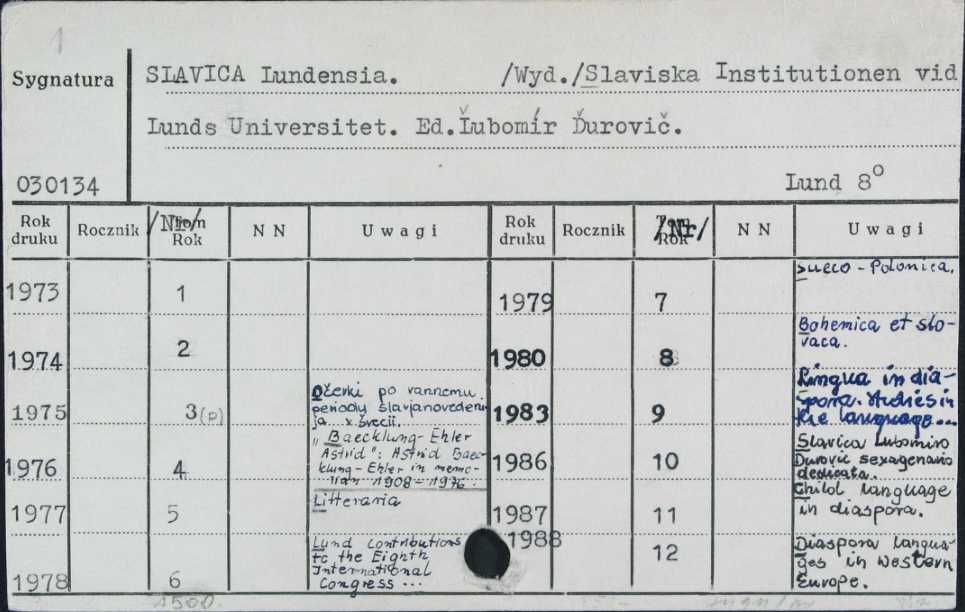 1
Sygnatura
SLAVICA Lundensia. /Wyd./Slaviska Institutionen vid
Lunds Universitet. Ed.Ľubomír Ďurovič.
030134
Lund 8°
Rok druku Rocznik /Nr/ Rok N N Uwagi Rok druku Rocznik /Nr/ N N Uwagi
1973 1
1974 2
1975 3(p) Očerki po rannemu
periodu slavjanovedeni-
ja v Švecii.
1976 4 „Baecklung-Ehler
Astrid": Astrid Baec-
klung-Ehler in memo-
riam 1908-1976.
1977 5 Litteraria
1978 6 Lund contributions
to the Eighth
International
Congress ...
1979 7 Sueco-Polonica.
1980 8 Bohemica et slo-
vaca.
1983 9 Lingua in dia-
spora. Studies in
the language...
1986 10 Slavica Lubomiro
Durovič sexagenario
dedicata.
1987 11 Child language
in diaspora.
1988 12 Diaspora langua-
ges in Western
Europe.
1500.